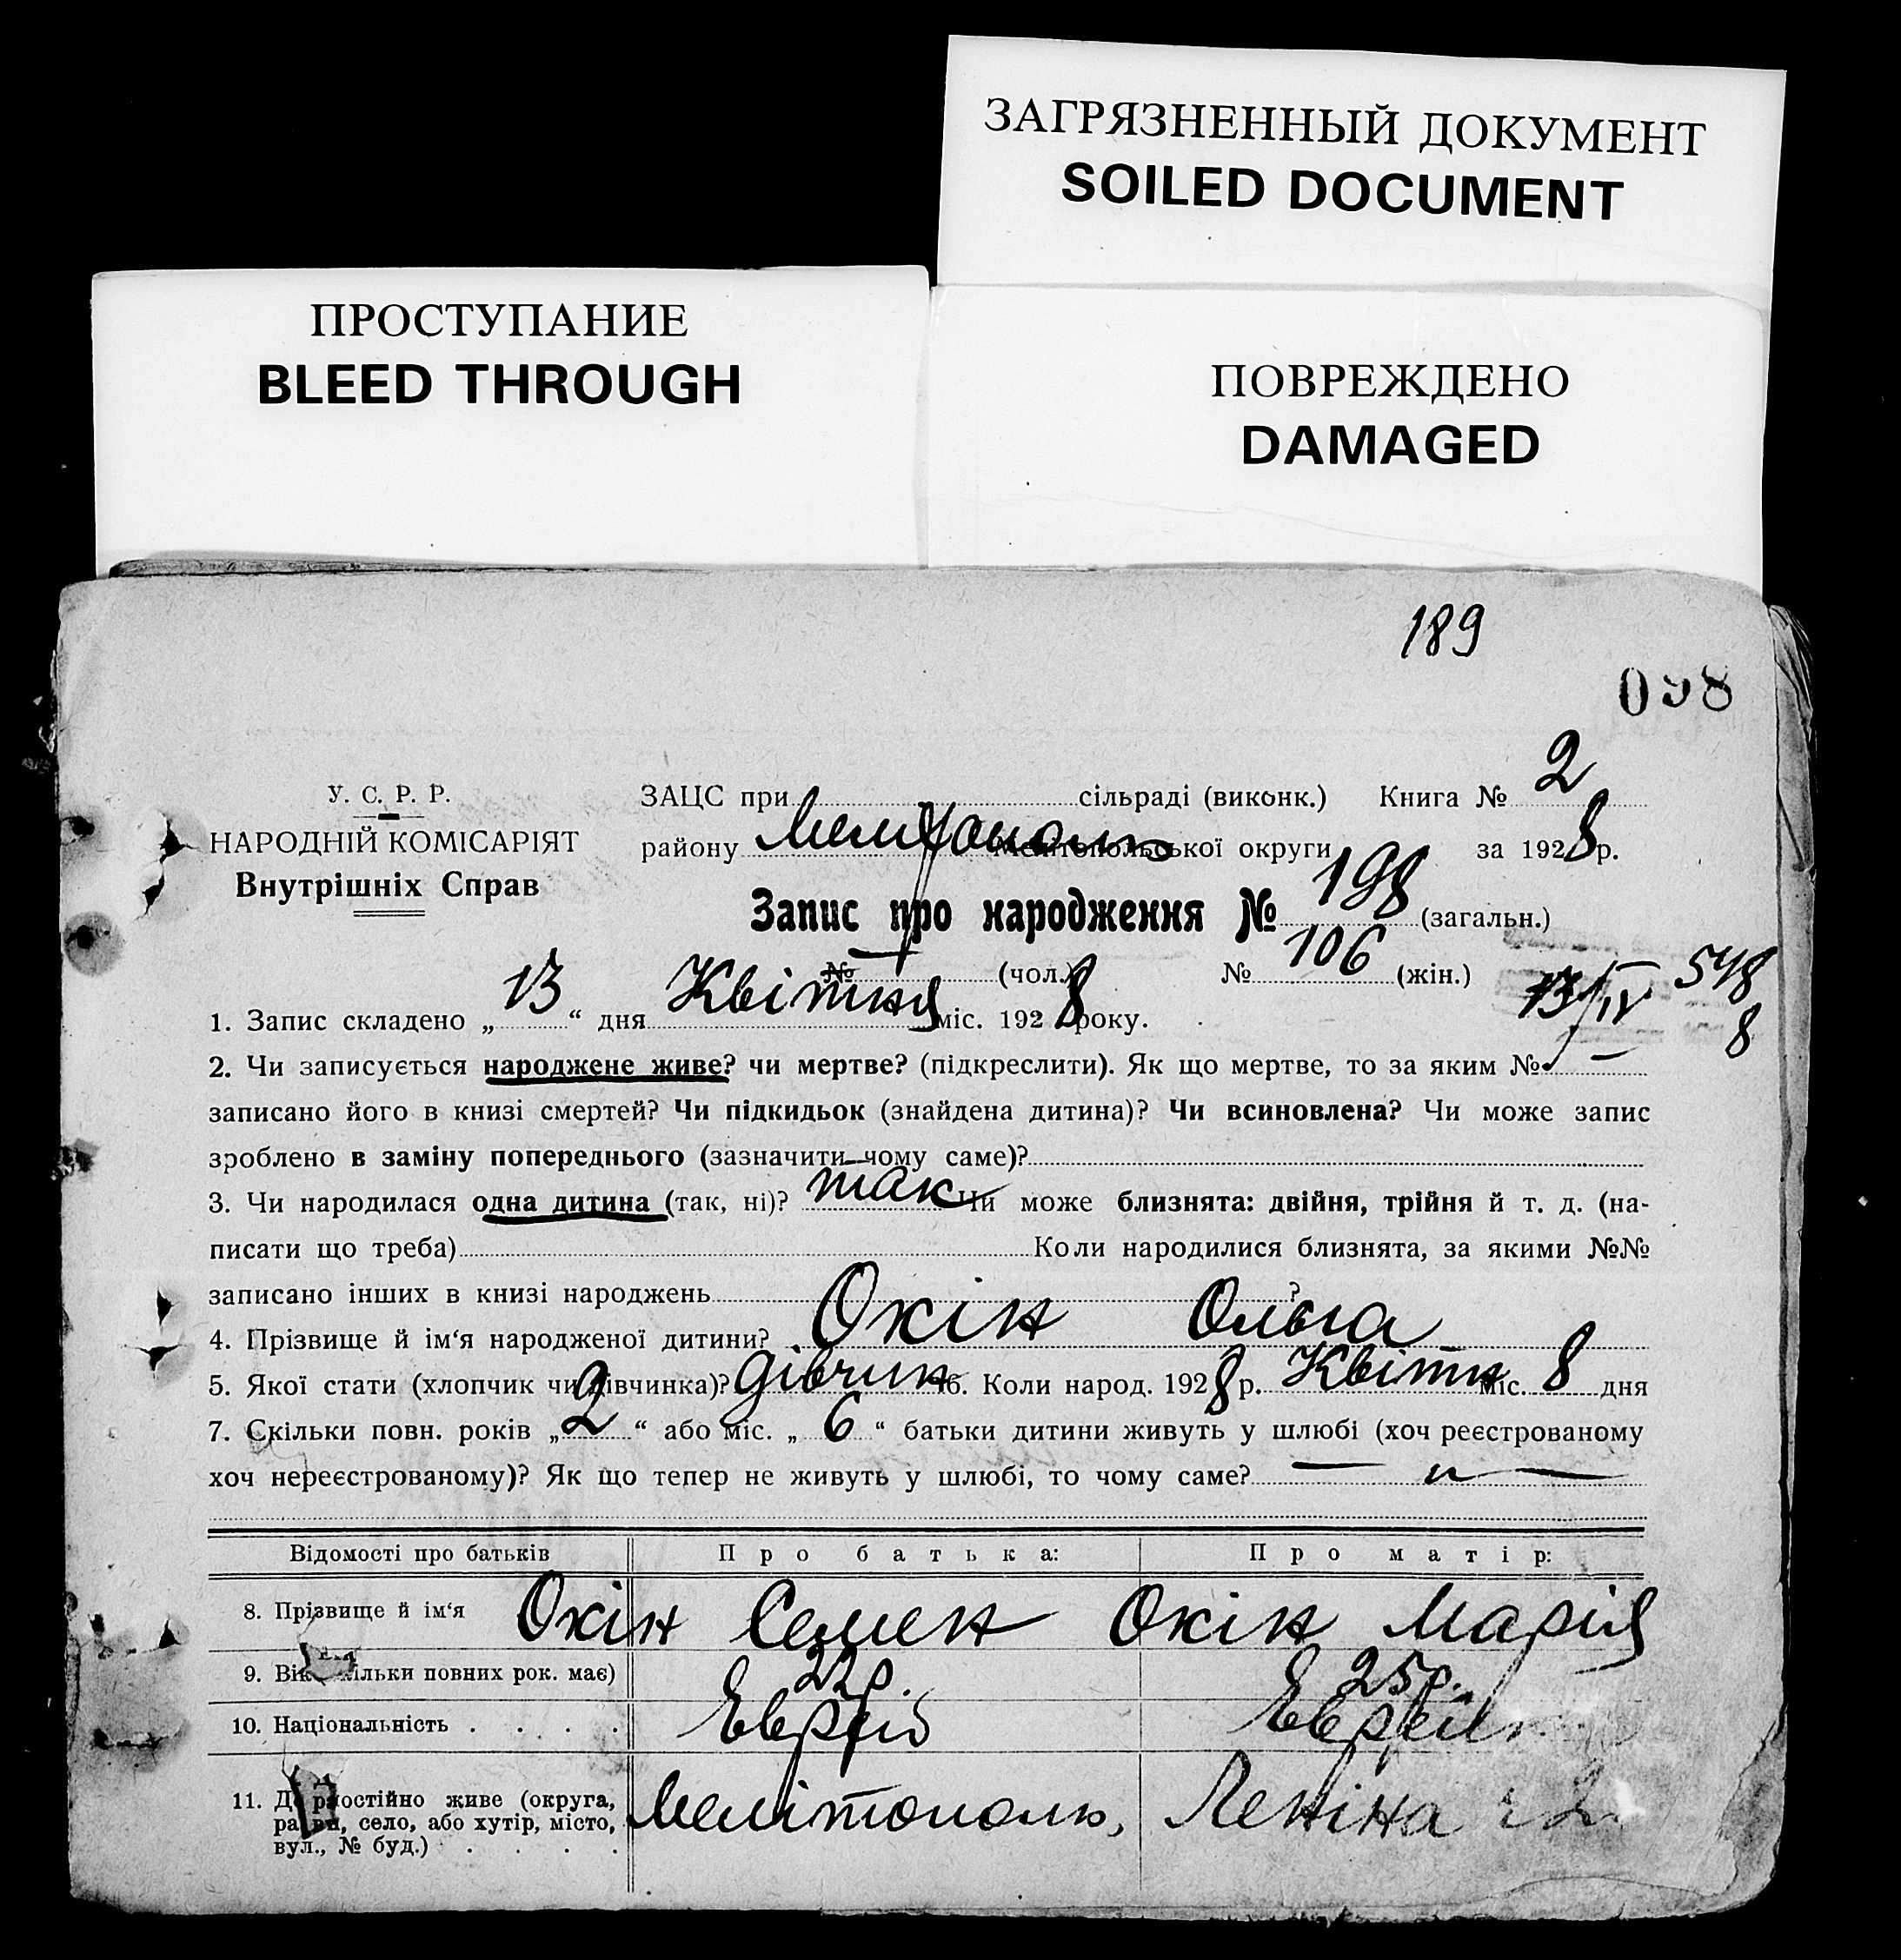 ЗАГРЯЗНЕННЫЙ ДОКУМЕНТ
SOILED DOCUMENT
ПРОСТУПАНИЕ
BLEED THROUGH
ПОВРЕЖДЕНО
DAMAGED
189
098
У. С. Р. Р.
НАРОДНІЙ КОМІСАРІЯТ
Внутрішніх Справ
ЗАЦС при сільраді (виконк.) Книга № 2
району Мелітополь Мелітопольської округи за 1928 р.
Запис про народження № 198 (загальн.)
№ — (чол.) № 106 (жін.)
13/IV 548
8
1. Запис складено „13“ дня Квітня міс. 1928 року.
2. Чи записується народжене живе? чи мертве? (підкреслити). Як що мертве, то за яким № —
записано його в книзі смертей? Чи підкидьок (знайдена дитина)? Чи всиновлена? Чи може запис
зроблено в заміну попереднього (зазначити чому саме)?
3. Чи народилася одна дитина (так, ні)? так Чи може близнята: двійня, трійня й т. д. (на-
писати що треба) Коли народилися близнята, за якими №№
записано інших в книзі народжень ?
4. Прізвище й ім‘я народженої дитини? Окін Ольга
5. Якої стати (хлопчик чи дівчинка)? дівчин 6. Коли народ. 1928 р. Квітн міс. 8 дня
7. Скільки повн. років „2“ або міс. „6“ батьки дитини живуть у шлюбі (хоч реєстрованому
хоч нереєстрованому)? Як що тепер не живуть у шлюбі, то чому саме? — „ —
Відомості про батьків Про батька: Про матір:
8. Прізвище й ім‘я Окін Семен Окін Марія
9. Вік скільки повних рок. має) 22р. 25р.
10. Національність . . . . Еврей Еврейк
11. Де постійно живе (округа,
район, село, або хутір, місто,
вул., № буд.) . . . .
Мелітополь, Леніна